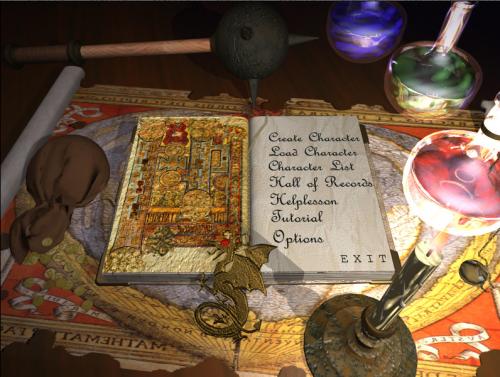 Create Character
Load Character
Character List
Hall of Records
Helplesson
Tutorial
Options
EXIT
MATHEMAT